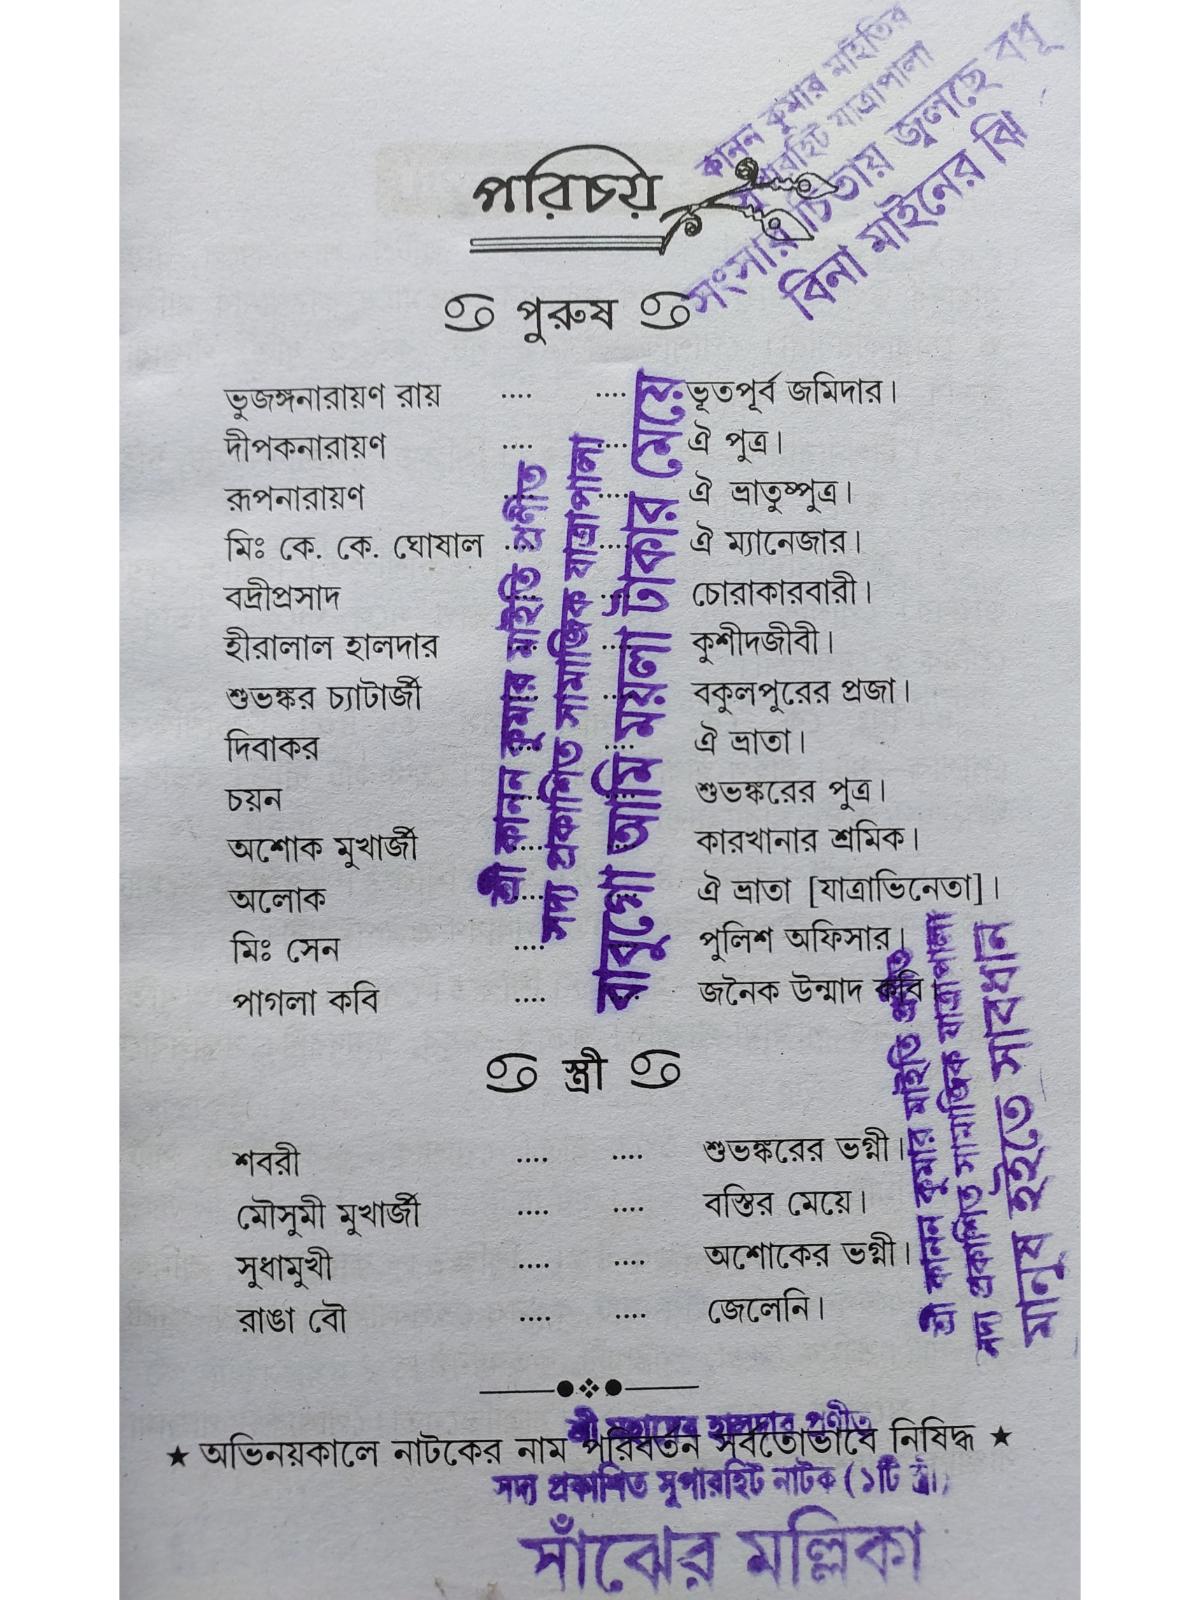 কানন কুমার মাইতির
সুপারহিট যাত্রাপালা
সংসার চিতায় জ্বলছে বধূ
বিনা মাইনের ঝি
পরিচয়
পুরুষ
ভুজঙ্গনারায়ণ রায় .... .... ভূতপূর্ব জমিদার।
দীপকনারায়ণ .... .... ঐ পুত্র।
রূপনারায়ণ .... .... ঐ ভ্রাতুষ্পুত্র।
মিঃ কে. কে. ঘোষাল .... .... ঐ ম্যানেজার।
বদ্রীপ্রসাদ .... .... চোরাকারবারী।
হীরালাল হালদার .... .... কুশীদজীবী।
শুভঙ্কর চ্যাটার্জী .... .... বকুলপুরের প্রজা।
দিবাকর .... .... ঐ ভ্রাতা।
চয়ন .... .... শুভঙ্করের পুত্র।
অশোক মুখার্জী .... .... কারখানার শ্রমিক।
অলোক .... .... ঐ ভ্রাতা [যাত্রাভিনেতা]।
মিঃ সেন .... .... পুলিশ অফিসার।
পাগলা কবি .... .... জনৈক উন্মাদ কবি।
শ্রী কানন কুমার মাইতি প্রণীত
সদ্য প্রকাশিত সামাজিক যাত্রাপালা
বাবুগো আমি ময়লা টাকার মেয়ে
স্ত্রী
শবরী .... .... শুভঙ্করের ভগ্নী।
মৌসুমী মুখার্জী .... .... বস্তির মেয়ে।
সুধামুখী .... .... অশোকের ভগ্নী।
রাঙা বৌ .... .... জেলেনি।
শ্রী কানন কুমার মাইতি প্রণীত
সদ্য প্রকাশিত সামাজিক যাত্রাপালা
মানুষ হইতে সাবধান
শ্রী হালদার প্রণীত
★ অভিনয়কালে নাটকের নাম পরিবর্তন সর্বতোভাবে নিষিদ্ধ ★
সদ্য প্রকাশিত সুপারহিট নাটক (১টি স্ত্রী)
সাঁঝের মল্লিকা